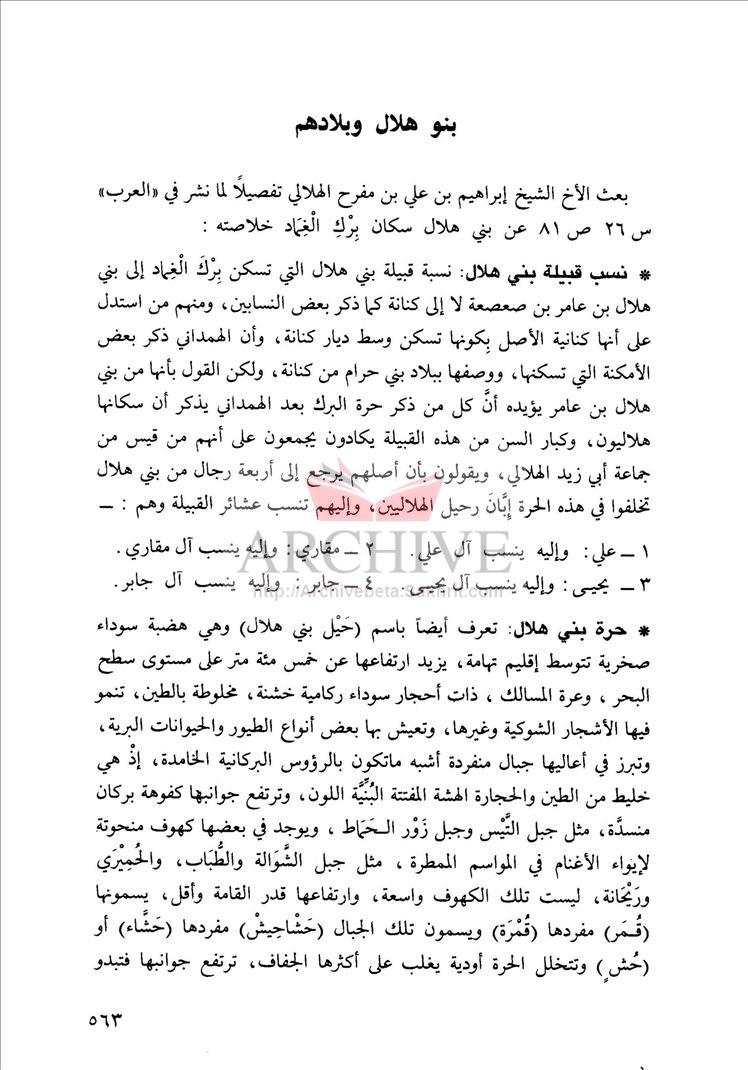 بنو هلال وبلادهم
بعث الأخ الشيخ إبراهيم بن علي بن مفرح الهلالي تفصيلًا لما نشر في «العرب»
س ٢٦ ص ٨١ عن بني هلال سكان بِرْكِ الْغِمَاد خلاصته :
* نسب قبيلة بني هلال: نسبة قبيلة بني هلال التي تسكن بِرْكَ الْغِمَاد إلى بني
هلال بن عامر بن صعصعة لا إلى كنانة كما ذكر بعض النسابين، ومنهم من استدل
على أنها كنانية الأصل بِكونها تسكن وسط ديار كنانة، وأن الهمداني ذكر بعض
الأمكنة التي تسكنها، ووصفها ببلاد بني حرام من كنانة، ولكن القول بأنها من بني
هلال بن عامر يؤيده أنَّ كل من ذكر حرة البرك بعد الهمداني يذكر أن سكانها
هلاليون، وكبار السن من هذه القبيلة يكادون يجمعون على أنهم من قيس من
جماعة أبي زيد الهلالي، ويقولون بأن أصلهم يرجع إلى أربعة رجال من بني هلال
تخلفوا في هذه الحرة إِبَّانَ رحيل الهلاليين، وإليهم تنسب عشائر القبيلة وهم : ــ
ARCHIVE
١ ــ علي: وإليه ينسب آل علي. ٢ ــ مقاري: وإليه ينسب آل مقاري.
٣ ــ يحيى: وإليه ينسب آل يحيى. ٤ ــ جابر: وإليه ينسب آل جابر.
http://Archivebeta.Sakhrit.com
* حرة بني هلال: تعرف أيضاً باسم (حَيْل بني هلال) وهي هضبة سوداء
صخرية تتوسط إقليم تهامة، يزيد ارتفاعها عن خمس مئة متر على مستوى سطح
البحر ، وعرة المسالك ، ذات أحجار سوداء ركامية خشنة، مخلوطة بالطين، تنمو
فيها الأشجار الشوكية وغيرها، وتعيش بها بعض أنواع الطيور والحيوانات البرية،
وتبرز في أعاليها جبال منفردة أشبه ماتكون بالرؤوس البركانية الخامدة، إذْ هي
خليط من الطين والحجارة الهشة المفتتة البُنِّيَّة اللون، وترتفع جوانبها كفوهة بركان
منسدَّة، مثل جبل التَّيْس وجبل زَوْر الـحَمَاط ، ويوجد في بعضها كهوف منحوتة
لإيواء الأغنام في المواسم الممطرة ، مثل جبل الشَّوَالة والظُّبَاب، والحُمِيْرَي
ورَيْحَانة، ليست تلك الكهوف واسعة، وارتفاعها قدر القامة وأقل، يسمونها
(قُمَر) مفردها (قُمْرَة) ويسمون تلك الجبال (حَشْاحِيشْ) مفردها (حَشَّاء) أو
(حُش) وتتخلل الحرة أودية يغلب على أكثرها الجفاف، ترتفع جوانبها فتبدو
٥٦٣